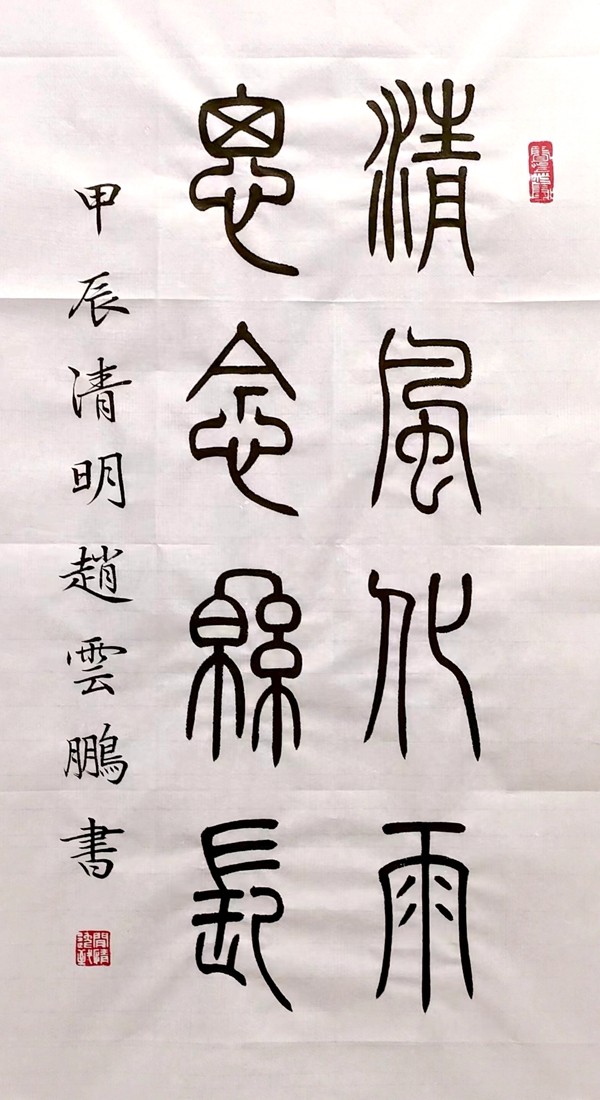 清風化雨
思念緜長
甲辰清明趙雲鵬書